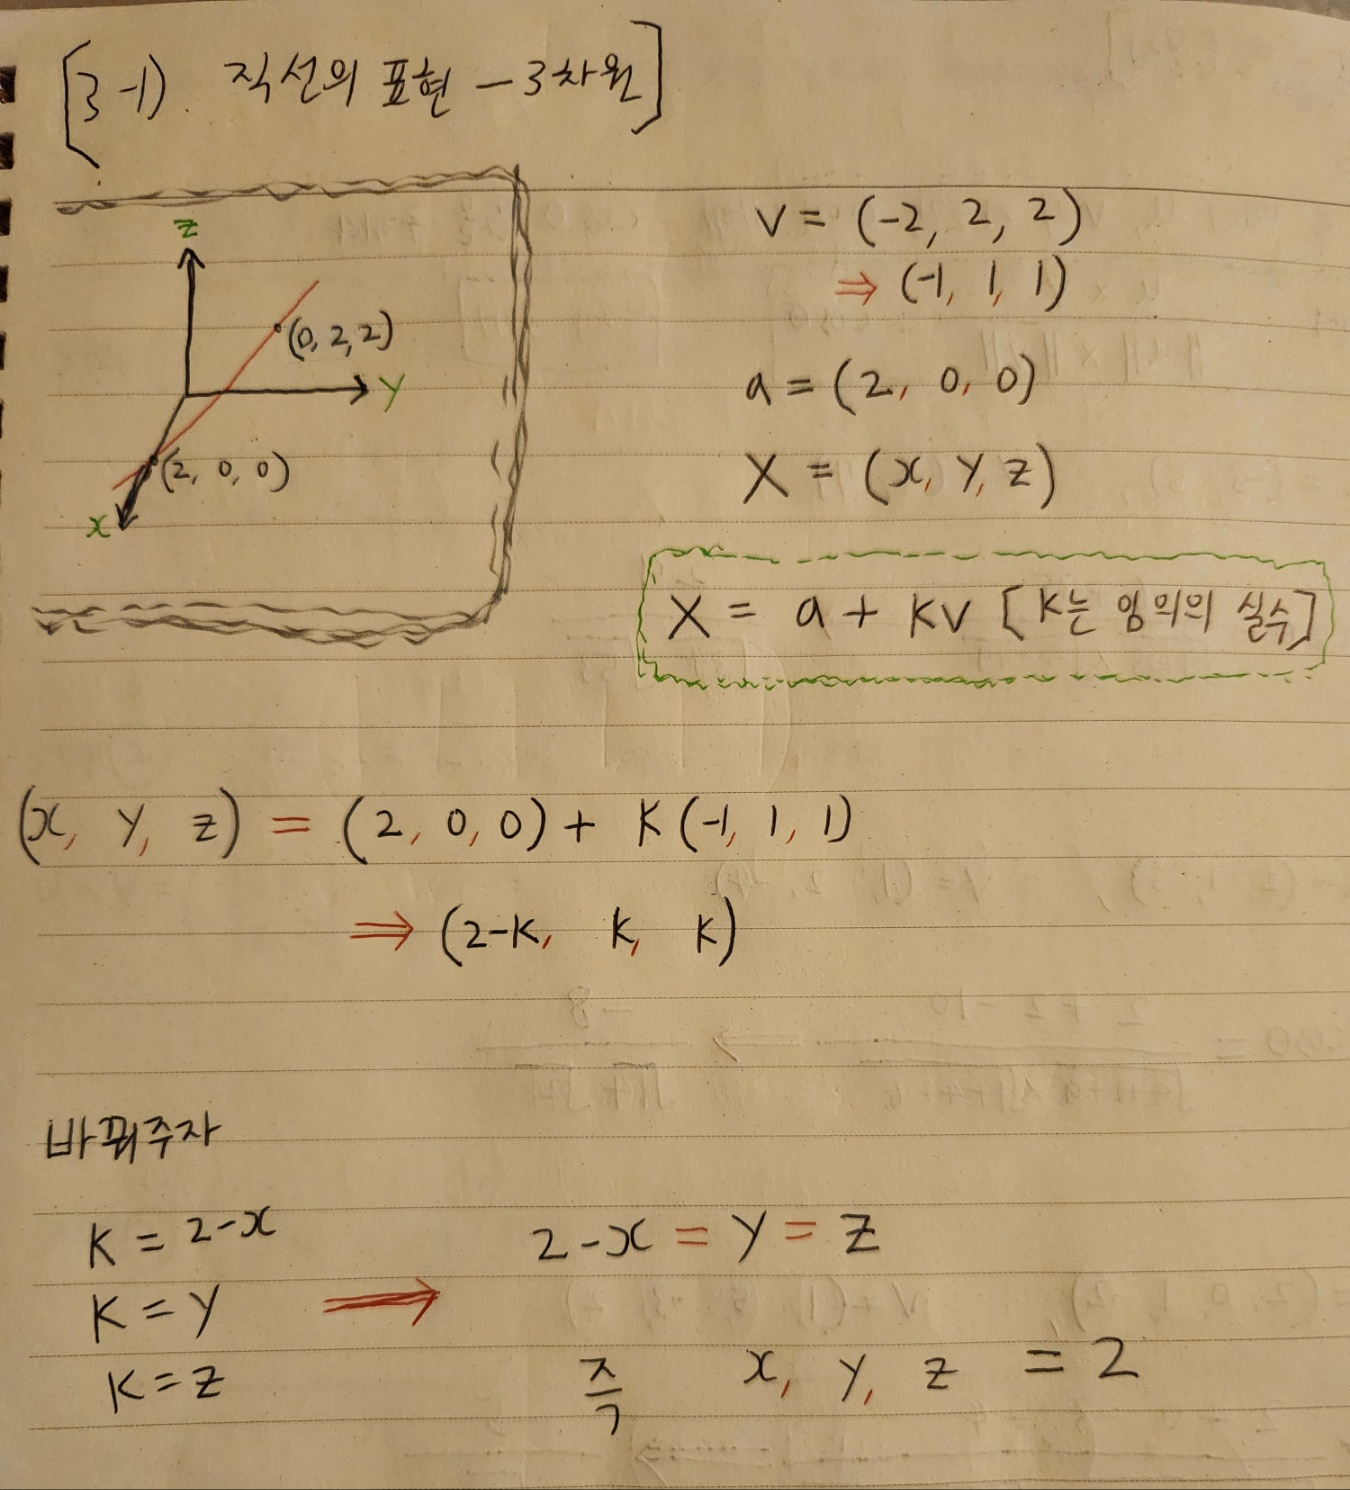 [3-1). 직선의 표현 - 3차원]
z
(0, 2, 2)
y
(2, 0, 0)
x
v = (-2, 2, 2)
⇒ (-1, 1, 1)
a = (2, 0, 0)
X = (x, y, z)
X = a + kv [k는 임의의 실수]
(x, y, z) = (2, 0, 0) + k(-1, 1, 1)
⇒ (2-k, k, k)
바꿔주자
k = 2-x
k = y
k = z
⇒ 2-x = y = z
즉 x, y, z = 2